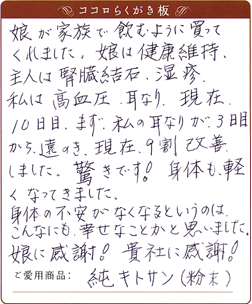 ココロらくがき板
娘が家族で飲むように買って
くれました。娘は健康維持、
主人は腎臓結石、湿疹、
私は高血圧、耳なり、現在、
10日目、まず、私の耳なりが、3日目
から、遠のき、現在、9割改善
しました。驚きです！身体も軽
くなってきました。
身体の不安がなくなるというのは、
こんなにも、幸せなことかと思いました。
娘に感謝！貴社に感謝！
ご愛用商品：純キトサン（粉末）